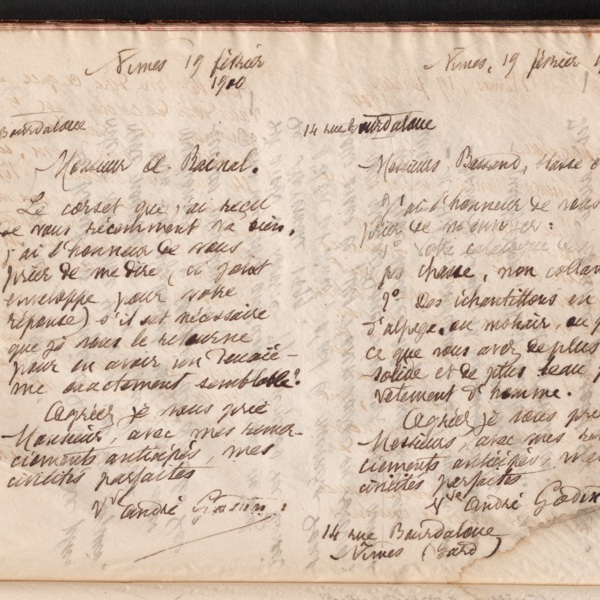 Nimes 19 février
1900
Bourdaloue
Monsieur de Rainal.
Le corset que j'ai reçu
de vous récemment va bien,
j'ai l'honneur de vous
prier de me dire, (ci joint
enveloppe pour votre
réponse) s'il est nécessaire
que je vous le retourne
pour en avoir un
me exactement semblable?
Agréer je vous prie
Monsieur, avec mes remer-
ciements anticipés, mes
civilités parfaites
Vve André
Nimes, 19 février 1
14 rue Bourdaloue
Messieurs
J'ai l'honneur de vous
prier de m'envoyer:
1° votre catalogue de
chasse, non
2° Des échantillons en
d'alpaga, ou mohair, ou
ce que vous avez de plus
solide et de plus beau p
vêtement d'homme.
Agréer je vous pri
Messieurs, avec mes re
ciements anticipés, me
civilités parfaites
Vve André Godin
14 rue Bourdaloue
Nimes (Gard)